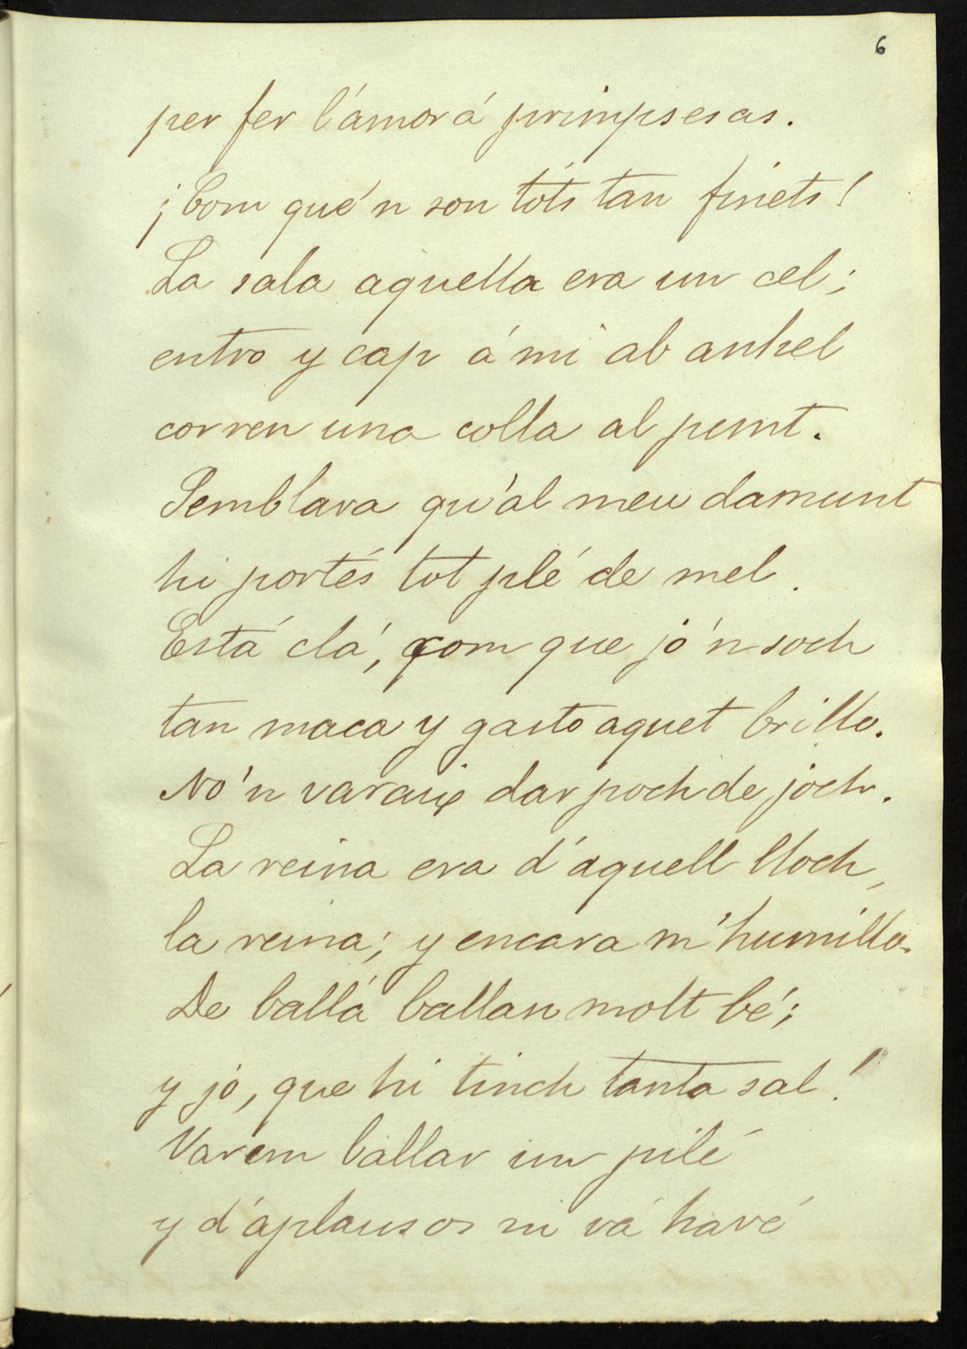 6
per fer l'ámor á primpsesas.
¡Com que'n son tóts tan finets!
La sala aquella era un cel;
entro y cap á mi ab anhel
corren una colla al punt.
Semblava qu'al meu damunt
hi portés tot plé de mel.
Está clá, com que jo'n soch
tan maca y gasto aquet brillo.
No'n varaig dar poch de joch.
La reina era d'aquell lloch,
la reina; y encara m'humillo.
De ballá ballan molt bé;
y jo, que hi tinch tanta sal!
Varem ballar un pilé
y d'aplausos ni vá havé